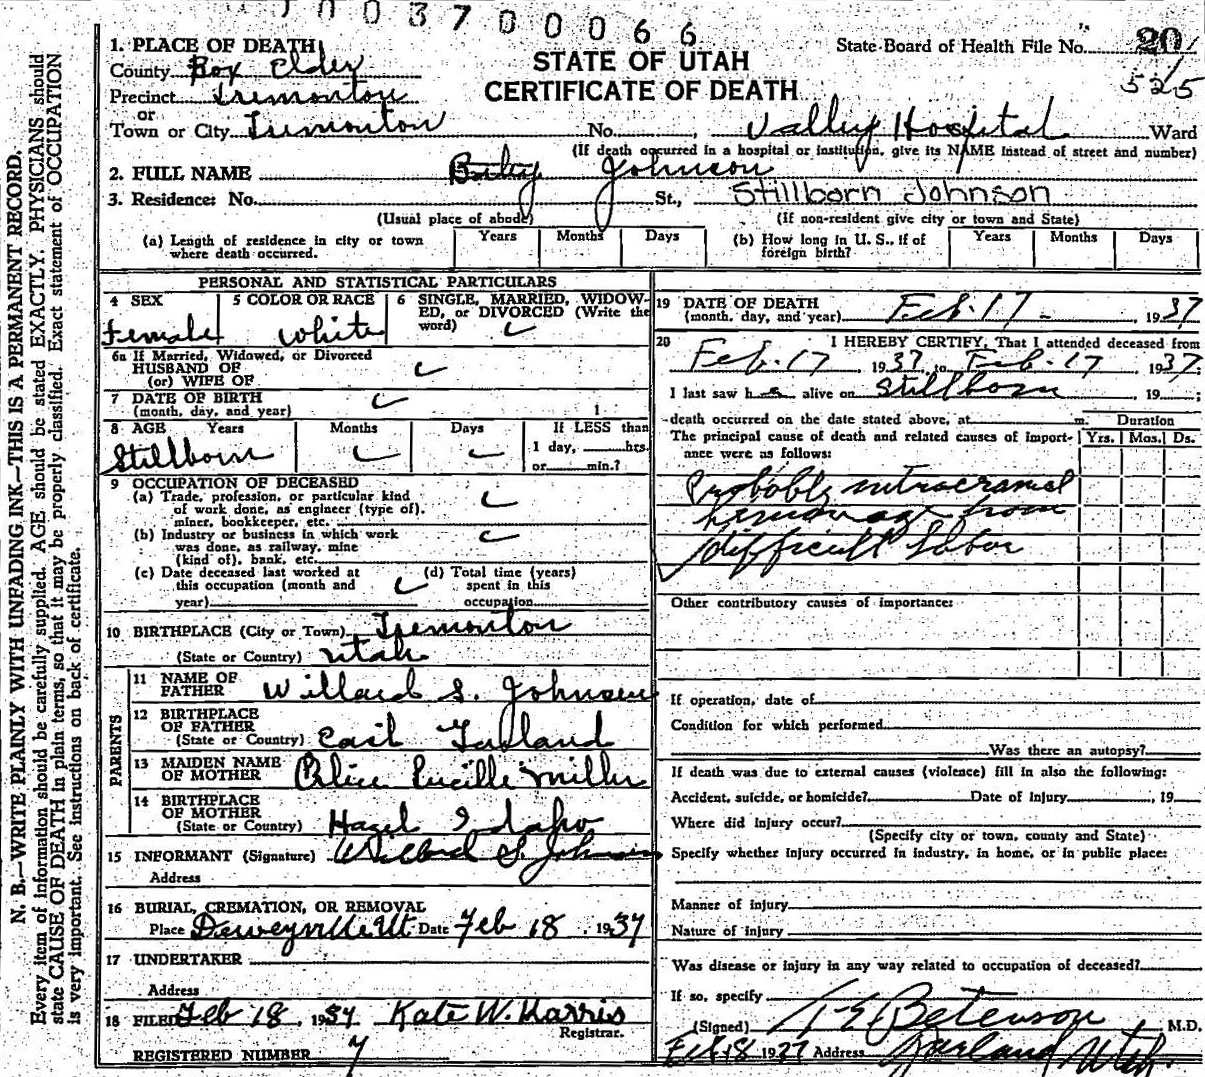 1 0 0 3 7 0 0 0 6 6
1. PLACE OF DEATH
County Box Elder
Precinct Tremonton
or
Town or City Tremonton
STATE OF UTAH
CERTIFICATE OF DEATH
State Board of Health File No. 20
525
No. , Valley Hospital Ward
(If death occurred in a hospital or institution, give its NAME instead of street and number)
2. FULL NAME Johnson
3. Residence: No. St., Stillborn Johnson
(Usual place of abode) (If non-resident give city or town and State)
(a) Length of residence in city or town where death occurred. Years Months Days
(b) How long in U. S., if of foreign birth? Years Months Days
PERSONAL AND STATISTICAL PARTICULARS
4 SEX
Female
5 COLOR OR RACE
White
6 SINGLE, MARRIED, WIDOWED, or DIVORCED (Write the word)
6a If Married, Widowed, or Divorced
HUSBAND OF
(or) WIFE OF
7 DATE OF BIRTH
(month, day, and year)
8 AGE Years Months Days If LESS than
Stillborn 1 day, hrs.
or min.?
9 OCCUPATION OF DECEASED
(a) Trade, profession, or particular kind
of work done, as engineer (type of),
miner, bookkeeper, etc.
(b) Industry or business in which work
was done, as railway, mine
(kind of), bank, etc.
(c) Date deceased last worked at
this occupation (month and
year)
(d) Total time (years)
spent in this
occupation
10 BIRTHPLACE (City or Town) Tremonton
(State or Country) Utah
PARENTS
11 NAME OF
FATHER Willard S. Johnson
12 BIRTHPLACE
OF FATHER
(State or Country) Garland
13 MAIDEN NAME
OF MOTHER Alice Lucille Miller
14 BIRTHPLACE
OF MOTHER
(State or Country) Hazel Idaho
15 INFORMANT (Signature) Willard S. Johnson
Address
16 BURIAL, CREMATION, OR REMOVAL
Place Deweyville Ut Date Feb 18 , 1937
17 UNDERTAKER
Address
18 FILED Feb 18 , 1937 Kate W. Harris
Registrar.
REGISTERED NUMBER 7
19 DATE OF DEATH
(month, day, and year) Feb. 17 - , 1937
20 I HEREBY CERTIFY, That I attended deceased from
Feb. 17 , 1937, to Feb. 17 1937;
I last saw h alive on Stillborn , 19 ;
death occurred on the date stated above, at m. Duration
The principal cause of death and related causes of importance were as follows: Yrs. Mos. Ds.
Probably intracranial
hemorrage from
difficult labor
Other contributory causes of importance:
If operation, date of
Condition for which performed
Was there an autopsy?
If death was due to external causes (violence) fill in also the following:
Accident, suicide, or homicide? Date of injury , 19
Where did injury occur?
(Specify city or town, county and State)
Specify whether injury occurred in industry, in home, or in public place:
Manner of injury
Nature of injury
Was disease or injury in any way related to occupation of deceased?
If so, specify
(Signed) Betenson M.D.
Feb 18 1937 Address Garland, Utah.
N. B.—WRITE PLAINLY WITH UNFADING INK—THIS IS A PERMANENT RECORD.
Every item of information should be carefully supplied. AGE should be stated EXACTLY. PHYSICIANS should
state CAUSE OF DEATH in plain terms, so that it may be properly classified. Exact statement of OCCUPATION
is very important. See instructions on back of certificate.